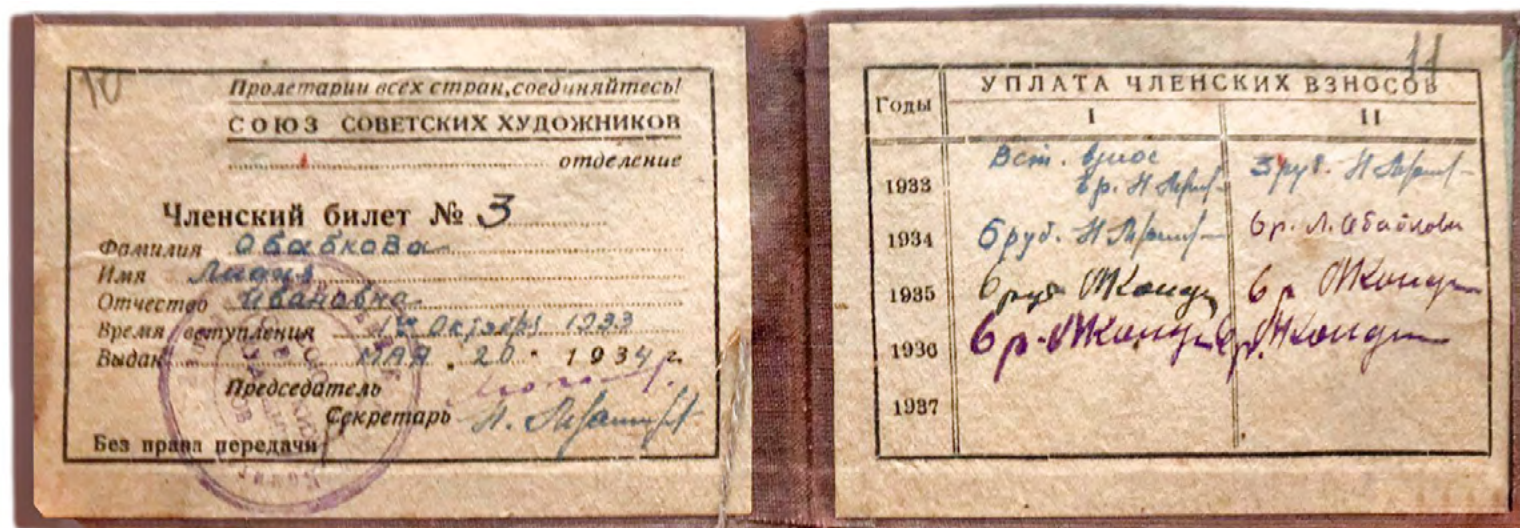 10
Пролетарии всех стран, соединяйтесь!
СОЮЗ СОВЕТСКИХ ХУДОЖНИКОВ
отделение
Членский билет № 3
Фамилия Обабкова
Имя Лидия
Отчество Ивановна
Время вступления 1 Октября 1933
Выдан МАЯ. 20. 1934 г.
Председатель
Секретарь
Без права передачи
11
УПЛАТА ЧЛЕНСКИХ ВЗНОСОВ
Годы I II
1933 Вст. взнос 3 руб.
6 р.
1934 6 руб. 6 р. Л. Обабкова
1935 6 руб 6 р
1936 6 р. 6 р.
1937